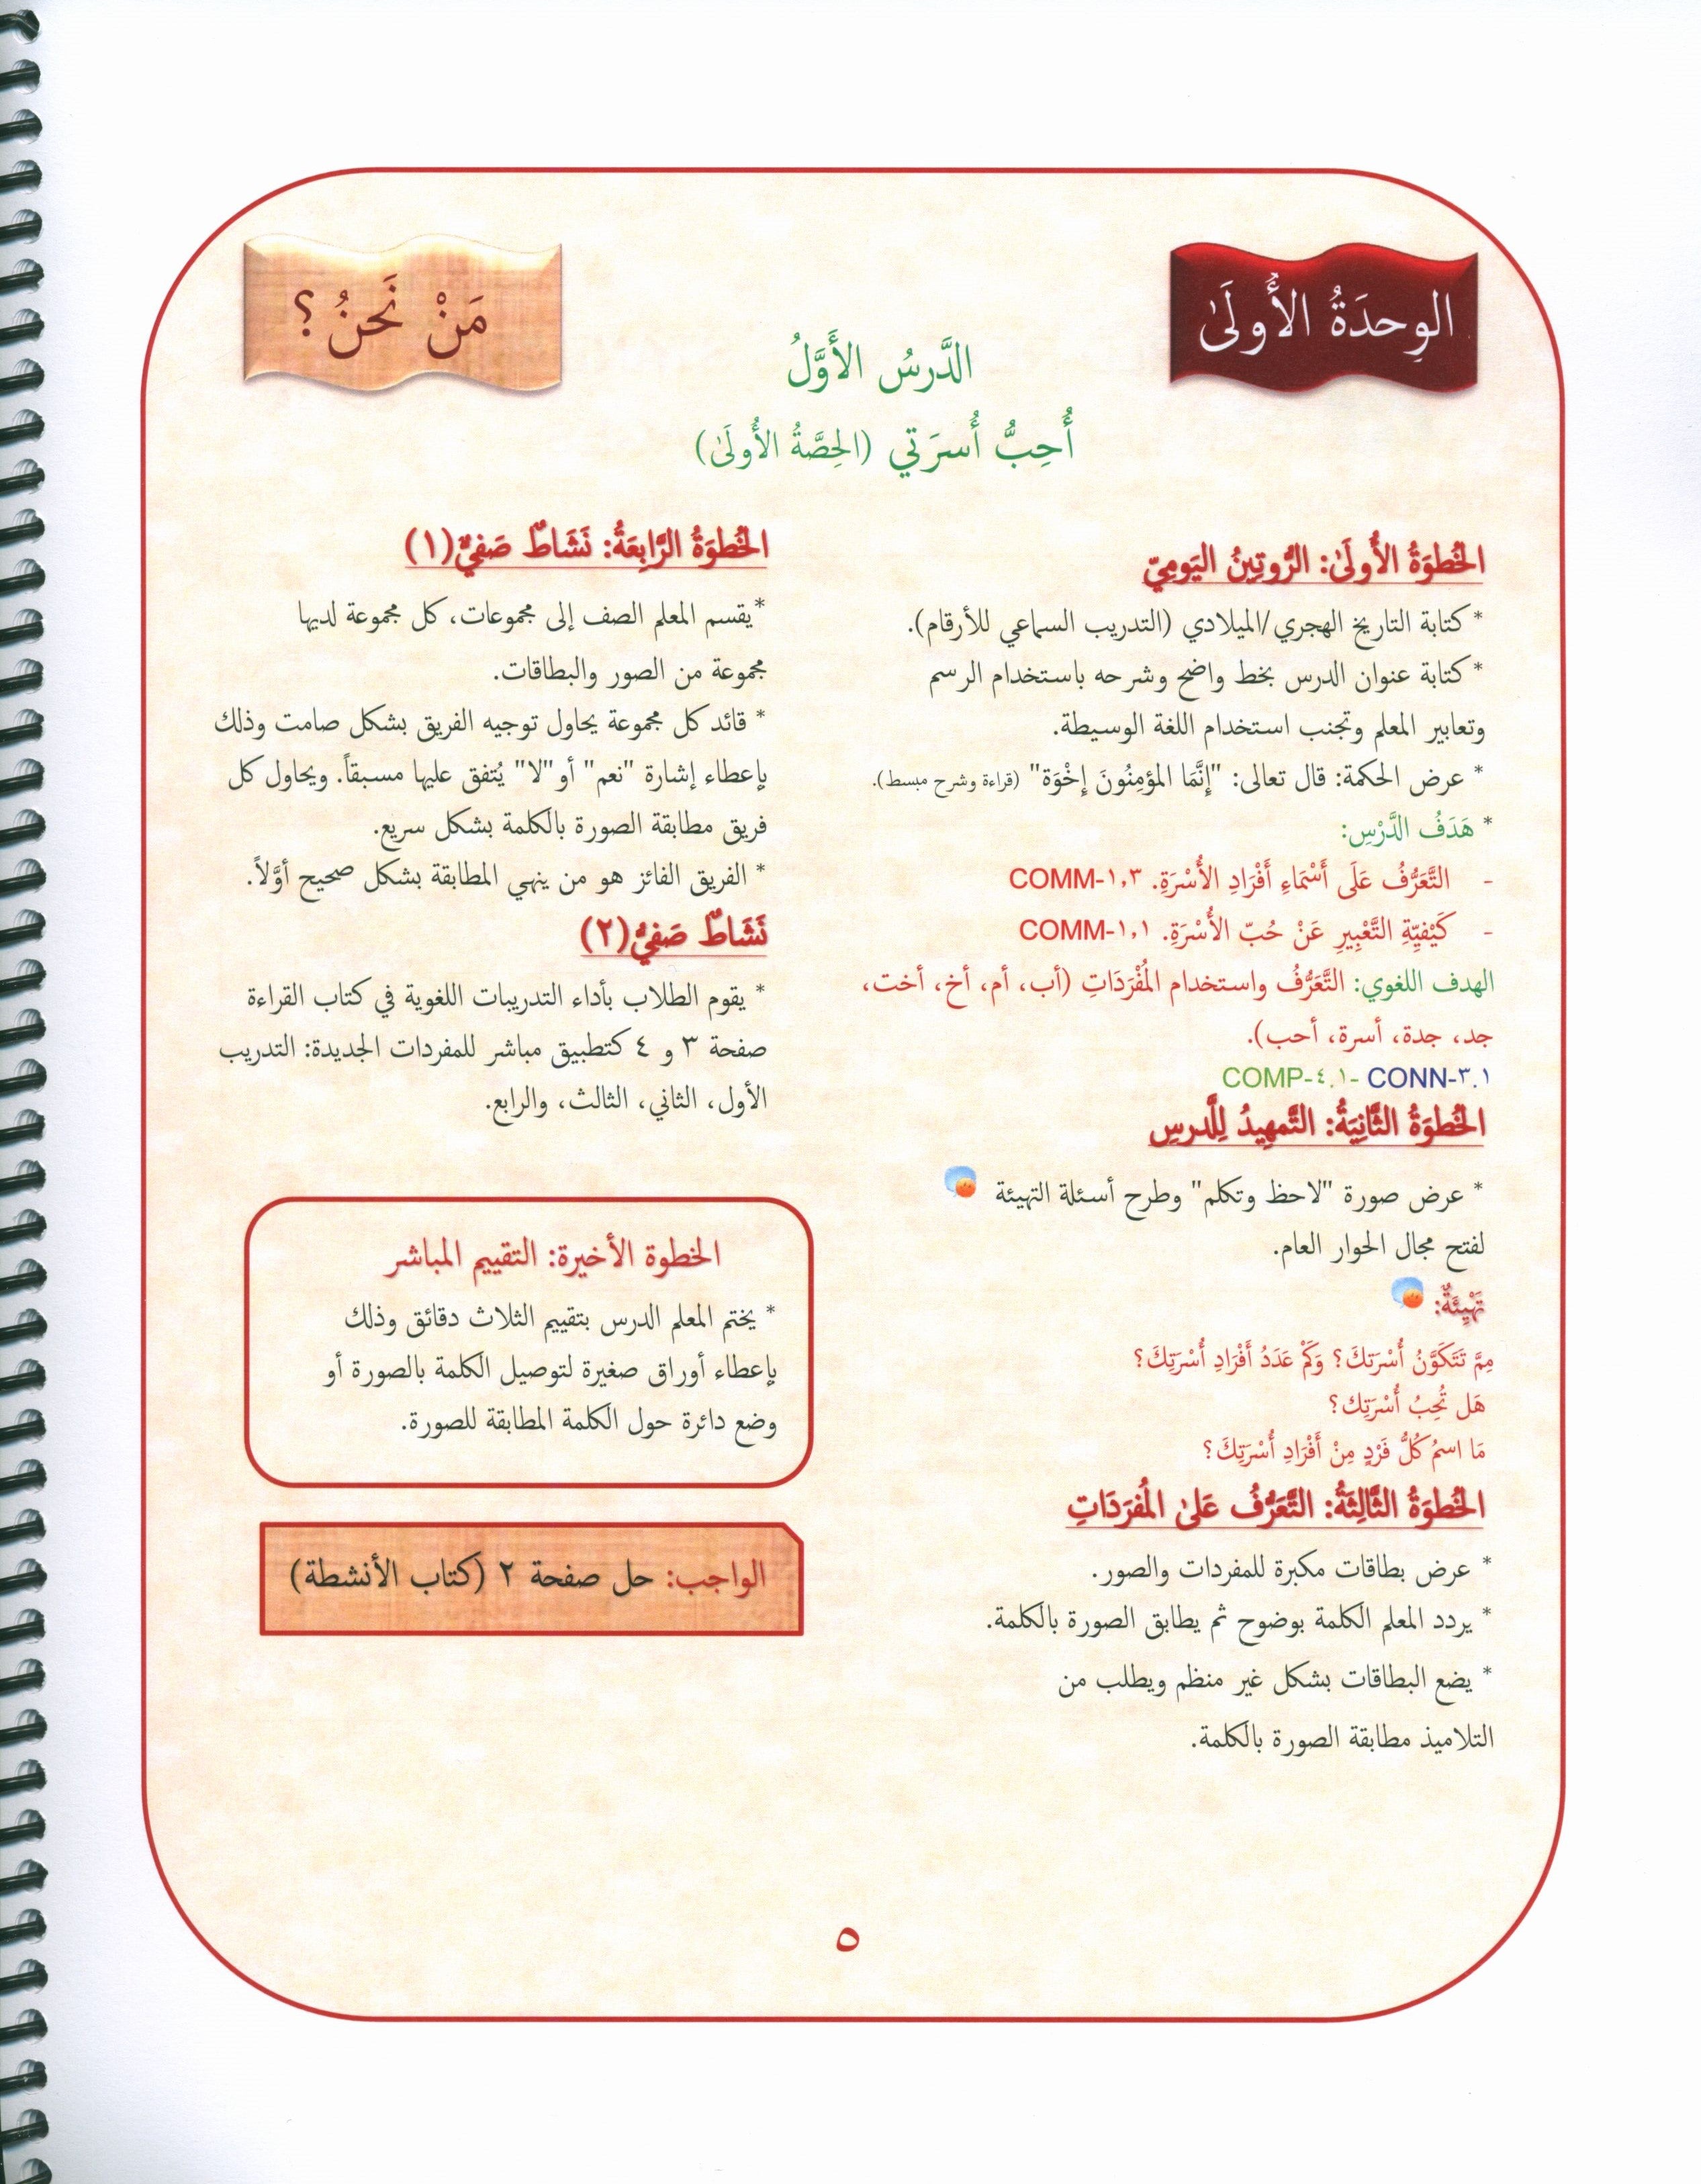 الوِحدَةُ الأُولَىٰ
مَنْ نَحنُ؟
الدَّرسُ الأَوَّلُ
أُحِبُّ أُسرَتي (الحِصَّةُ الأُولَىٰ)
الخُطوَةُ الأُولَىٰ: الرُّوتِينُ اليَومِيّ
* كتابة التاريخ الهجري/الميلادي (التدريب السماعي للأرقام).
* كتابة عنوان الدرس بخط واضح وشرحه باستخدام الرسم
وتعابير المعلم وتجنب استخدام اللغة الوسيطة.
* عرض الحكمة: قال تعالى: "إِنَّمَا المؤمِنُونَ إِخْوَة" (قراءة وشرح مبسط).
* هَدَفُ الدَّرْسِ:
- التَّعَرُّفُ عَلَى أَسْمَاءِ أَفْرَادِ الأُسْرَةِ. COMM-١,٣
- كَيْفِيِّةِ التَّعْبِيرِ عَنْ حُبّ الأُسْرَةِ. COMM-١,١
الهدف اللغوي: التَّعَرُّفُ واستخدام المُفْرَدَاتِ (أب، أم، أخ، أخت،
جد، جدة، أسرة، أحب).
COMP-٤.١- CONN-٣.١
الخُطوَةُ الثَّانِيَةُ: التَّمهِيدُ لِلَّدرسِ
* عرض صورة "لاحظ وتكلم" وطرح أسئلة التهيئة
لفتح مجال الحوار العام.
تَهْيِئَةٌ:
مِمَّ تَتَكَوَّنُ أُسْرَتكَ؟ وَكَمْ عَدَدُ أَفْرَادِ أُسْرَتِكَ؟
هَل تُحِبُ أُسْرَتِك؟
مَا اسمُ كُلُّ فَرْدٍ مِنْ أَفْرَادِ أُسْرَتِكَ؟
الخُطوَةُ الثَّالِثَةُ: التَّعَرُّفُ عَلىٰ المُفرَدَاتِ
* عرض بطاقات مكبرة للمفردات والصور.
* يردد المعلم الكلمة بوضوح ثم يطابق الصورة بالكلمة.
* يضع البطاقات بشكل غير منظم ويطلب من
التلاميذ مطابقة الصورة بالكلمة.
الخُطوَةُ الرَّابِعَةُ: نَشَاطٌ صَفيٌّ(١)
*يقسم المعلم الصف إلى مجموعات، كل مجموعة لديها
مجموعة من الصور والبطاقات.
* قائد كل مجموعة يحاول توجيه الفريق بشكل صامت وذلك
بإعطاء إشارة "نعم" أو "لا" يُتفق عليها مسبقاً. ويحاول كل
فريق مطابقة الصورة بالكلمة بشكل سريع.
* الفريق الفائز هو من ينهي المطابقة بشكل صحيح أوَّلاً.
نَشَاطٌ صَفيٌّ(٢)
* يقوم الطلاب بأداء التدريبات اللغوية في كتاب القراءة
صفحة ٣ و ٤ كتطبيق مباشر للمفردات الجديدة: التدريب
الأول، الثاني، الثالث، والرابع.
الخطوة الأخيرة: التقييم المباشر
* يختم المعلم الدرس بتقييم الثلاث دقائق وذلك
بإعطاء أوراق صغيرة لتوصيل الكلمة بالصورة أو
وضع دائرة حول الكلمة المطابقة للصورة.
الواجب: حل صفحة ٢ (كتاب الأنشطة)
٥